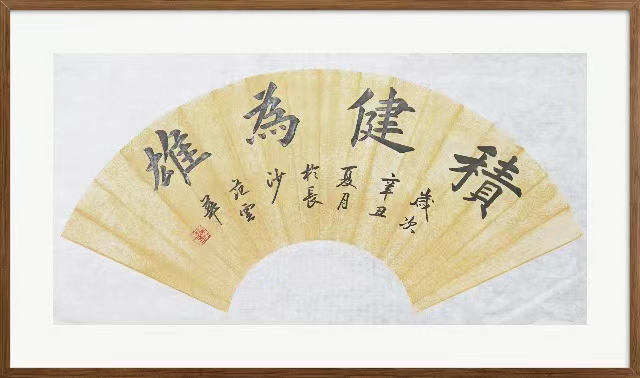 積健為雄
歲次
辛丑
夏月
於長
沙
范雲
華